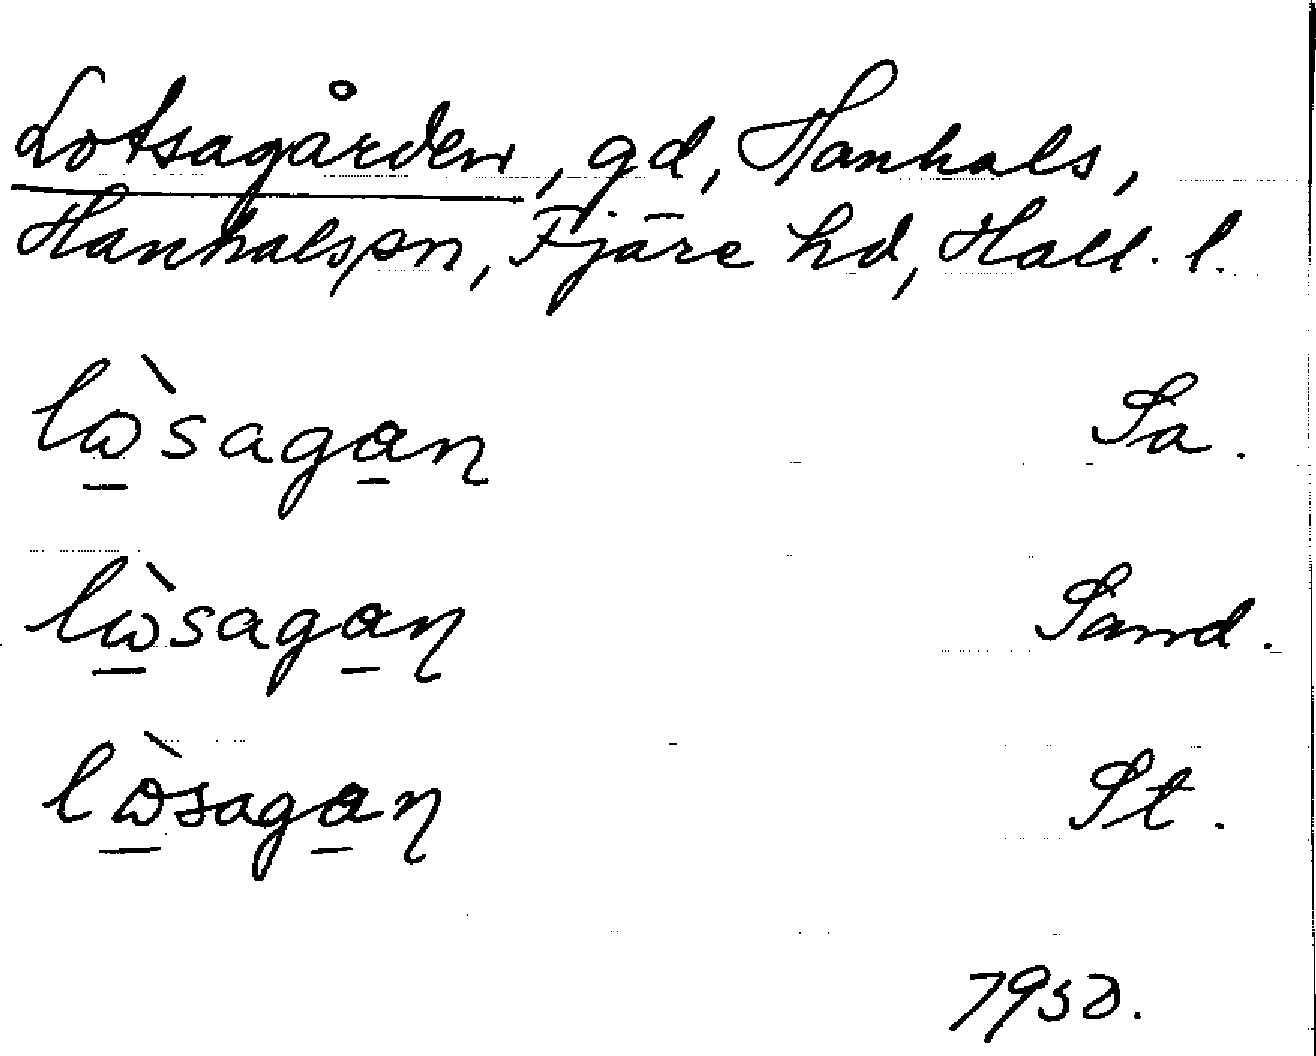 Lotsagården, gd, Hanhals,
Hanhals sn, Fjäre hd, Hall. l.
lὼ̲saga̲ɳ Sa.
lὼ̲saga̲ɳ Sand.
lὼ̲saga̲ɳ St.
1950.